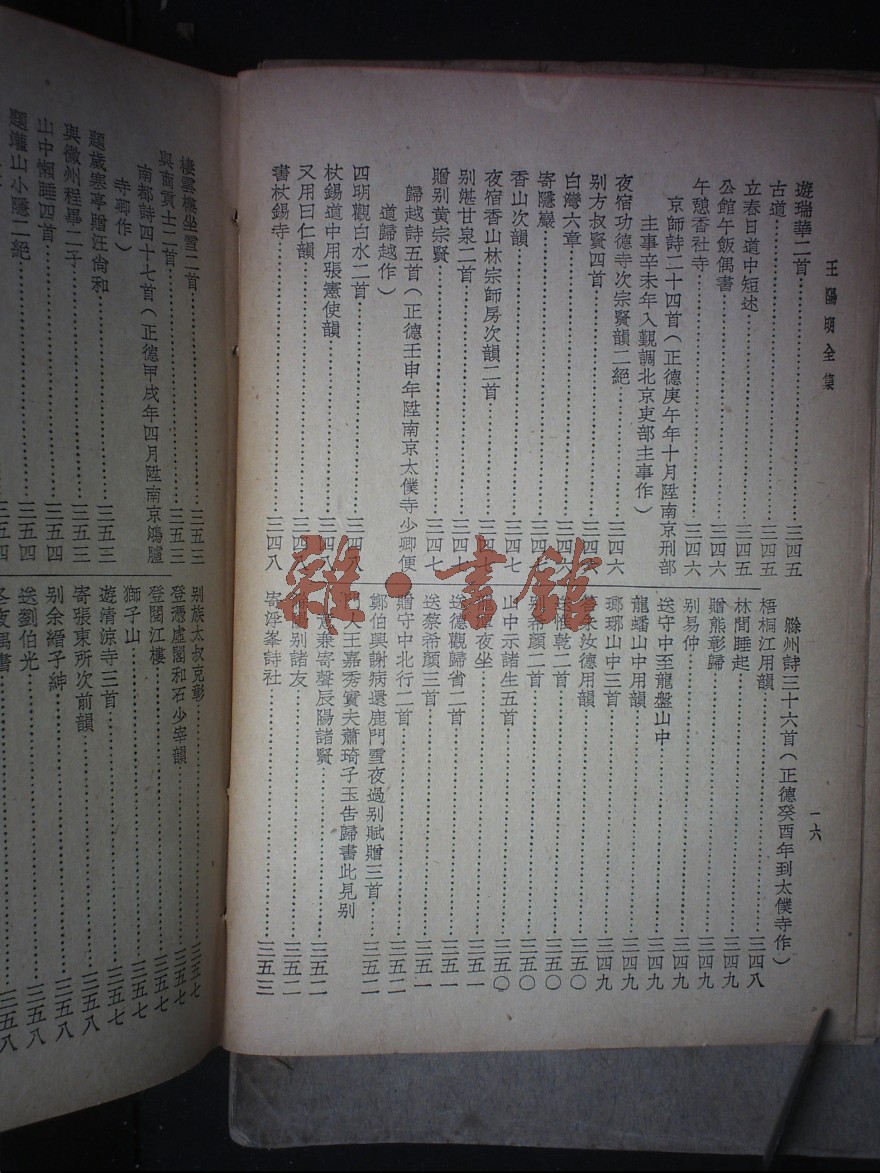 王陽明全集
一六
遊瑞華二首……三四五
古道……三四五
立春日道中短述……三四五
公館午飯偶書……三四六
午憩香社寺……三四六
京師詩二十四首（正德庚午年十月陞南京刑部
主事辛未年入覲調北京吏部主事作）
夜宿功德寺次宗賢韻二絕……三四六
別方叔賢四首……三四六
白灣六章……三四六
寄隱巖……三四七
香山次韻……三四七
夜宿香山林宗師房次韻二首……三四七
別湛甘泉二首……三四七
贈別黃宗賢……三四七
歸越詩五首（正德壬申年陞南京太僕寺少卿便
道歸越作）
四明觀白水二首……三四八
杖錫道中用張憲使韻……三四八
又用曰仁韻……三四八
書杖錫寺……三四八
滁州詩三十六首（正德癸酉年到太僕寺作）
梧桐江用韻……三四八
林間睡起……三四九
贈熊彰歸……三四九
別易仲……三四九
送守中至龍盤山中……三四九
龍蟠山中用韻……三四九
瑯琊山中三首……三四九
汝德用韻……三五〇
惟乾二首……三五〇
別希顏二首……三五〇
山中示諸生五首……三五〇
夜坐……三五一
送德觀歸省二首……三五一
送蔡希顏三首……三五一
贈守中北行二首……三五二
鄭伯興謝病還鹿門雪夜過別賦贈三首……三五二
王嘉秀實夫蕭琦子玉告歸書此見別
意兼寄聲辰陽諸賢……三五二
別諸友……三五二
寄浮峯詩社……三五三
棲雲樓坐雪二首……三五三
與商貢士二首……三五三
南都詩四十七首（正德甲戌年四月陞南京鴻臚
寺卿作）
題歲寒亭贈汪尚和……三五三
與徽州程畢二子……三五三
山中懶睡四首……三五四
題灌山小隱二絕……三五四
別族太叔克彰……三五七
登憑虛閣和石少宰韻……三五七
登閱江樓……三五七
獅子山……三五七
遊清涼寺三首……三五七
寄張東所次前韻……三五八
別余縉子紳……三五八
送劉伯光……三五八
冬夜偶書……三五八
雜·書館